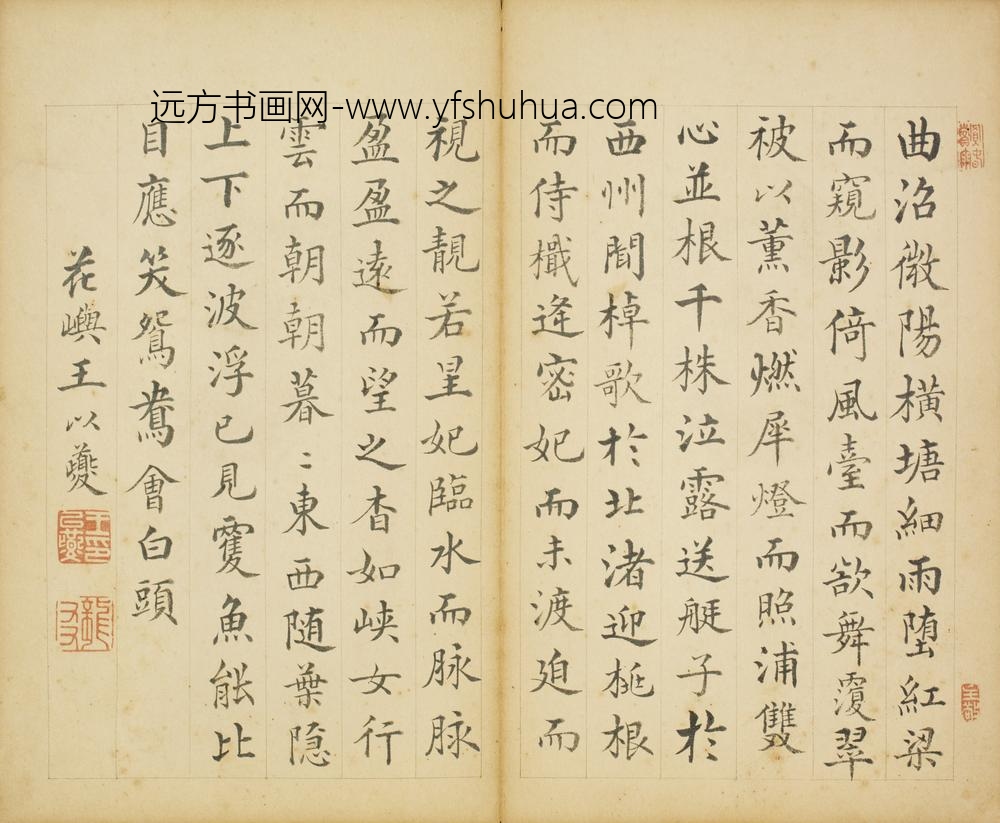 远方书画网-www.yfshuhua.com
曲沼微陽橫塘細雨堕紅梁
而窺影倚風臺而欲舞覆翠
被以薰香燃犀燈而照浦雙
心並根千株泣露送艇子於
西州聞棹歌於北渚迎桃根
而侍檝逢密妃而未渡迫而
視之靚若星妃臨水而脉脉
盈盈遠而望之杳如峽女行
雲而朝朝暮〻東西随葉隐
上下逐波浮已見雙魚能比
目應笑鴛鴦會白頭
花嶼王以